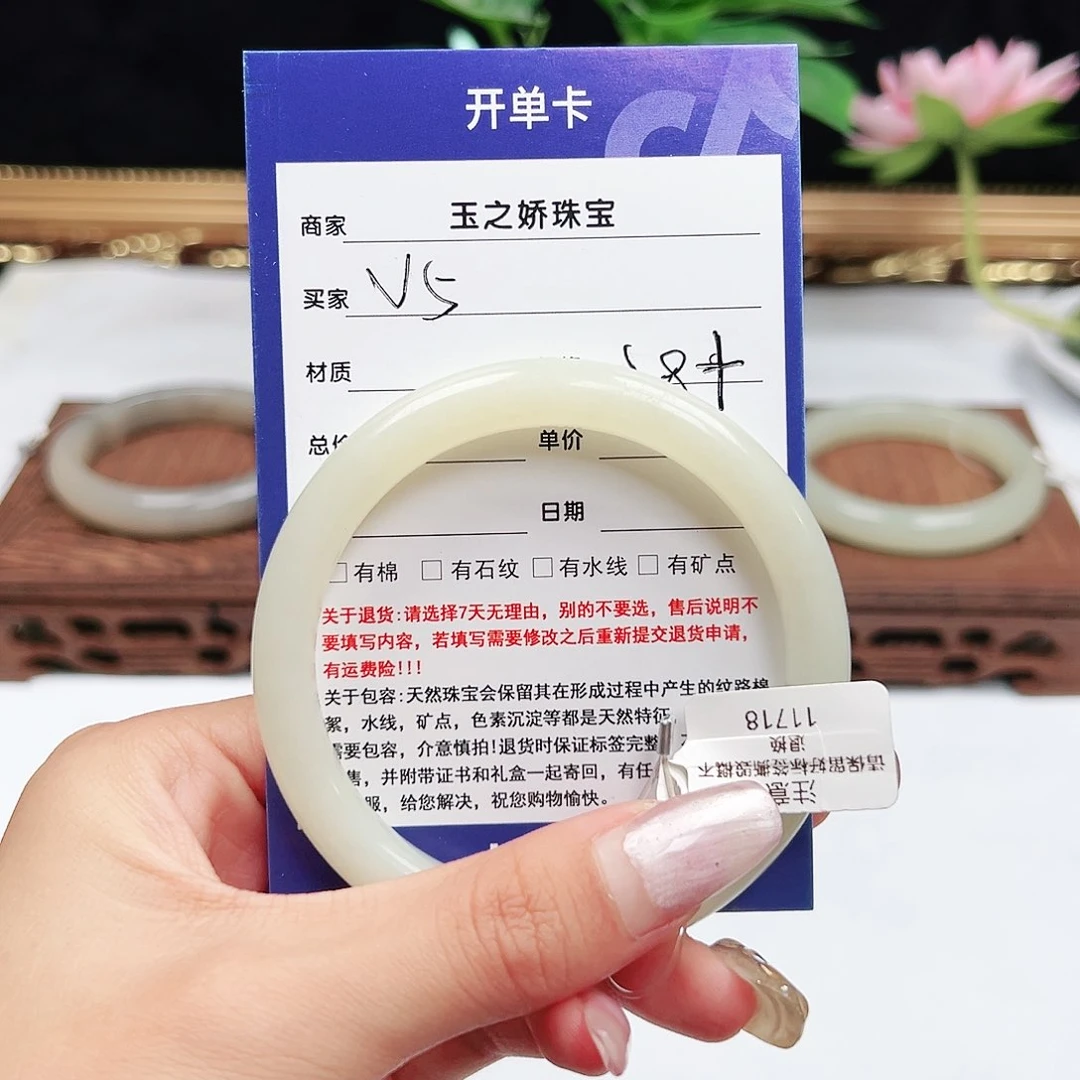 开单卡
商家 玉之娇珠宝
买家 V5
材质
单价
日期
□有棉 □有石纹 □有水线 □有矿点
关于退货:请选择7天无理由，别的不要选，售后说明不
要填写内容，若填写需要修改之后重新提交退货申请，
有运费险!!!
关于包容:天然珠宝会保留其在形成过程中产生的纹路棉
絮，水线，矿点，色素沉淀等都是天然特征，
需要包容，介意慎拍!退货时保证标签完整
售，并附带证书和礼盒一起寄回，有任
服，给您解决，祝您购物愉快。
注意
请保留好标签撕毁概不
退换
11718